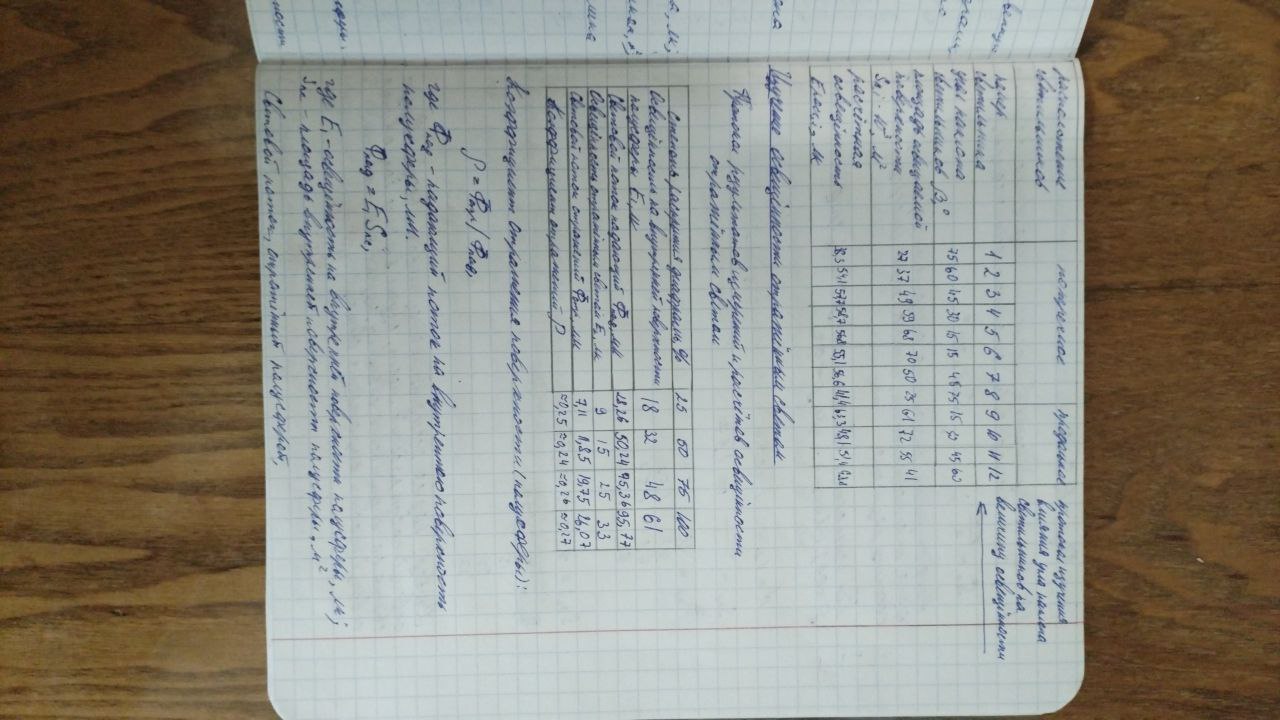 расположение светильников поперечное продольное
протокол изучения
влияния угла наклона
светильников на
величину освещённости
номер светильника 1 2 3 4 5 6 7 8 9 10 11 12
угол наклона светильников β,° 75 60 45 30 15 15 45 75 15 30 45 60
площадь освещаемой поверхности 27 37 49 59 68 70 50 25 61 72 55 41
расчётная освещённость Eрас.i, лк 54,1 57,7 58,7 56,8 55,1 56,6 41,4 63,3 48,1 51,4
Изучение освещённости отражённым светом
Протокол результатов измерений и расчётов освещённости
отражённым светом
Степень раскрытия диафрагмы, % 25 50 75 100
Освещённость на внутренней поверхности
полусферы E₁, лк 18 32 48 61
Световой поток падающий Фпад, лм 28,26 50,24 75,36 95,77
Освещённость отражённым светом E₂, лк 9 15 25 33
Световой поток отражений Фотр, лм 7,11 11,85 19,75 26,07
Коэффициент отражений ρ ≈0,25 ≈0,24 ≈0,26 ≈0,27
Коэффициент отражения поверхности (полусферы):
ρ = Фотр / Фпад,
где Фпад - падающий поток на внутреннюю поверхность
полусферы, лм.
Фпад = E₁ Sпс,
где E₁ - освещённость на внутренней поверхности полусферы, лк;
Sпс - площадь внутренней поверхности полусферы, м²
Световой поток, отражённый полусферой,